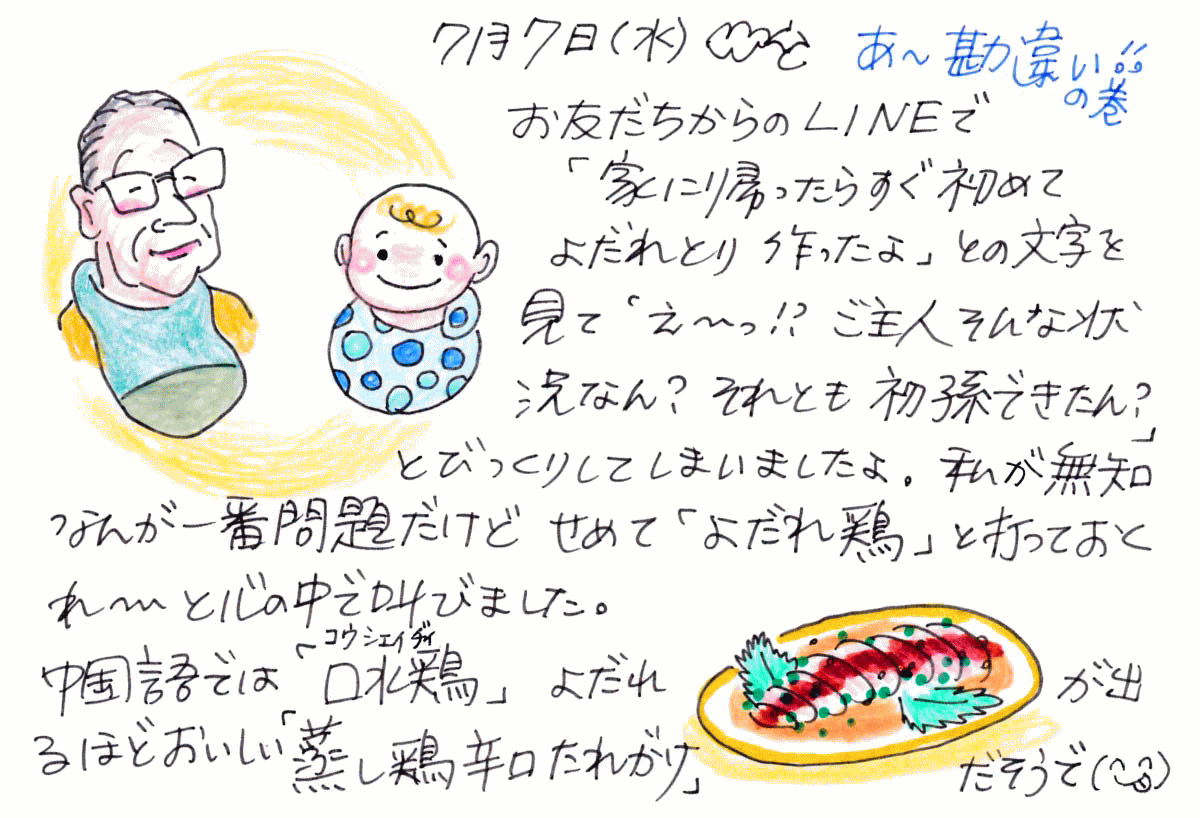 7月7日(水)
あ〜勘違い!!
の巻
お友だちからのLINEで
「家に帰ったらすぐ初めて
よだれとり作ったよ」との文字を
見て「え〜っ!?ご主人そんな状
況なん?それとも初孫できたん?」
とびっくりしてしまいましたよ。私が無知
なんが一番問題だけどせめて「よだれ鶏」と打っておく
れ〜〜と心の中で叫びました。
コウシェイヂィ
中国語では「口水鶏」よだれが出
るほどおいしい「蒸し鶏辛口たれがけ」だそうで